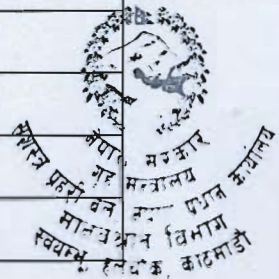 नेपाल सरकार
गृह मन्त्रालय
सशस्त्र प्रहरी बल नेपाल प्रधान कार्यालय
मानव स्रोत विभाग
स्वयम्भू हल्चोक काठमाडौं